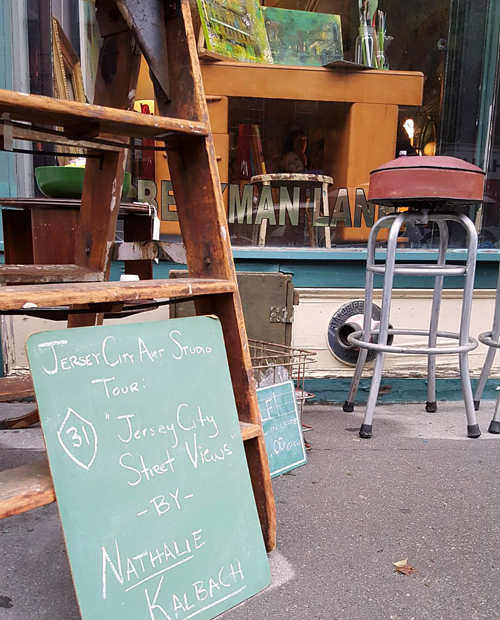 JERSEY CITY ART STUDIO
TOUR:
31
"Jersey City
Street Views"
-BY-
NATHALIE
KALBACH